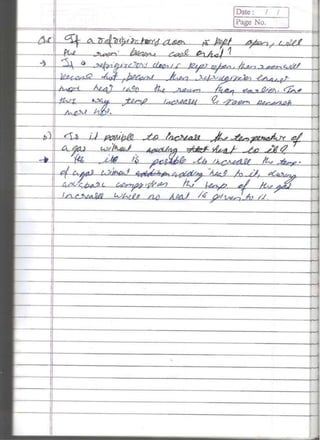 Date : / /
Page No.
If a refrigirator's door is kept open, will
the room become cool or hot?
→ If a refrigirator's door is kept open, then room will
become hot, because then refrigirator
more heat into the room than earlier. In
this way temp increases & room becomes
more hot.
5) Is it possible to increase the temperature of
a gas without adding heat to it?
→ it is possible to increase the temp.
of a gas without adding heat to it, during
the temp of the gas
increases while no heat is given to it.